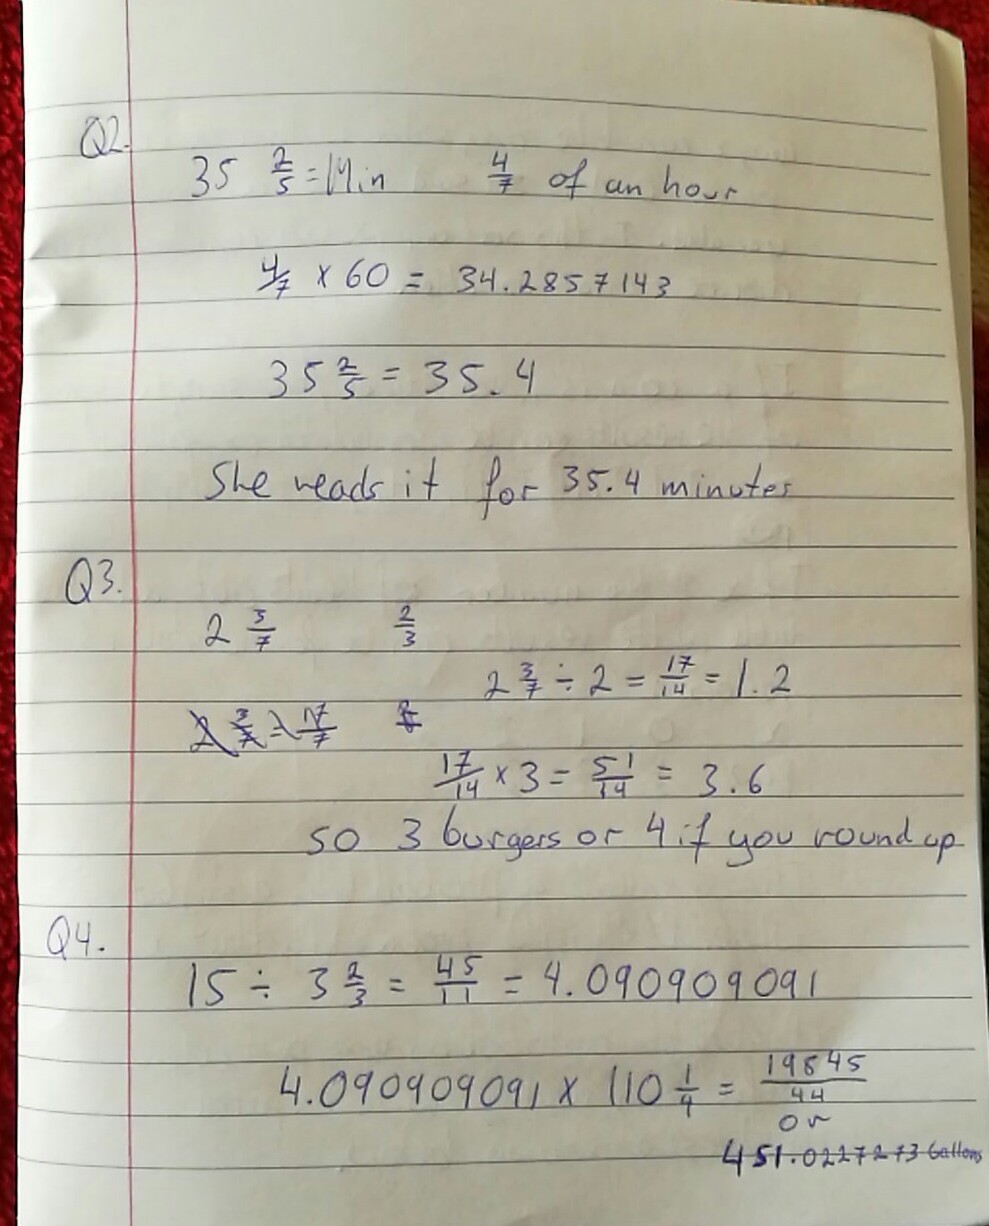 Q2.
35 2/5 = Min 4/7 of an hour
4/7 x 60 = 34.2857143
35 2/5 = 35.4
She reads it for 35.4 minutes
Q3.
2 3/7 2/3
2 3/7 ÷ 2 = 17/14 = 1.2
17/14 x 3 = 51/14 = 3.6
so 3 burgers or 4 if you round up
Q4.
15 ÷ 3 2/3 = 45/11 = 4.090909091
4.090909091 x 110 1/4 = 19845/44
or
451.0227273 Gallons